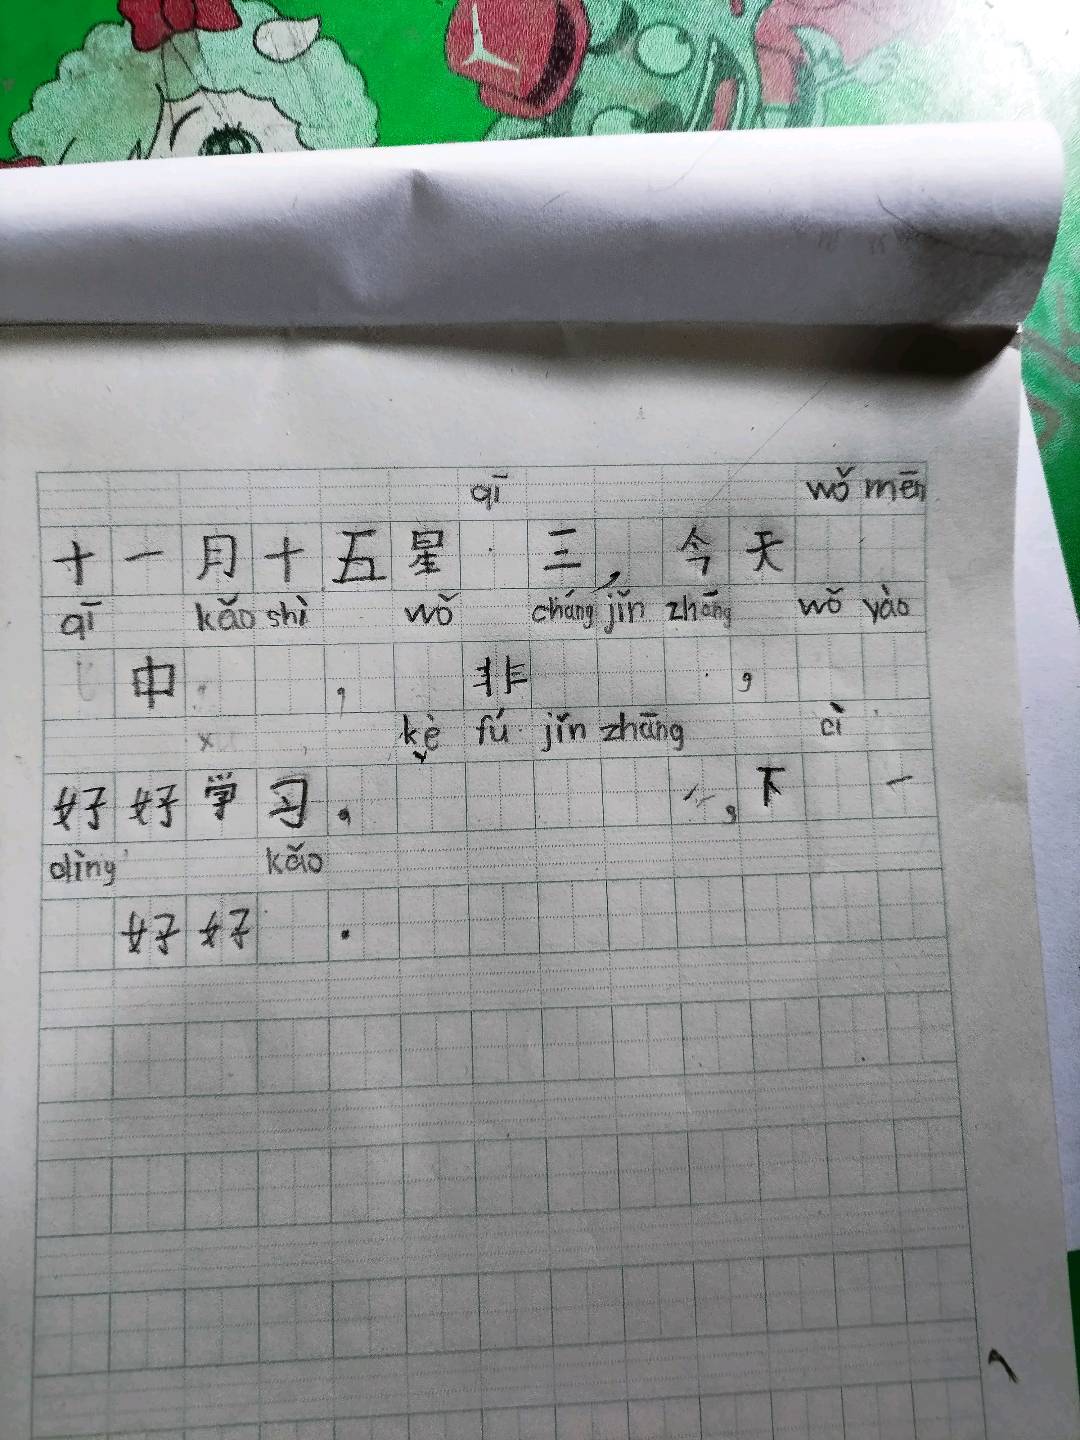 qī wǒ mēn
十一月十五星 三，今天
qī kǎo shì wǒ cháng jǐn zhāng wǒ yào
中 ， 非 ，
kè fú jǐn zhāng cì
好好学习， ，下 一
dìng kǎo
好好 .